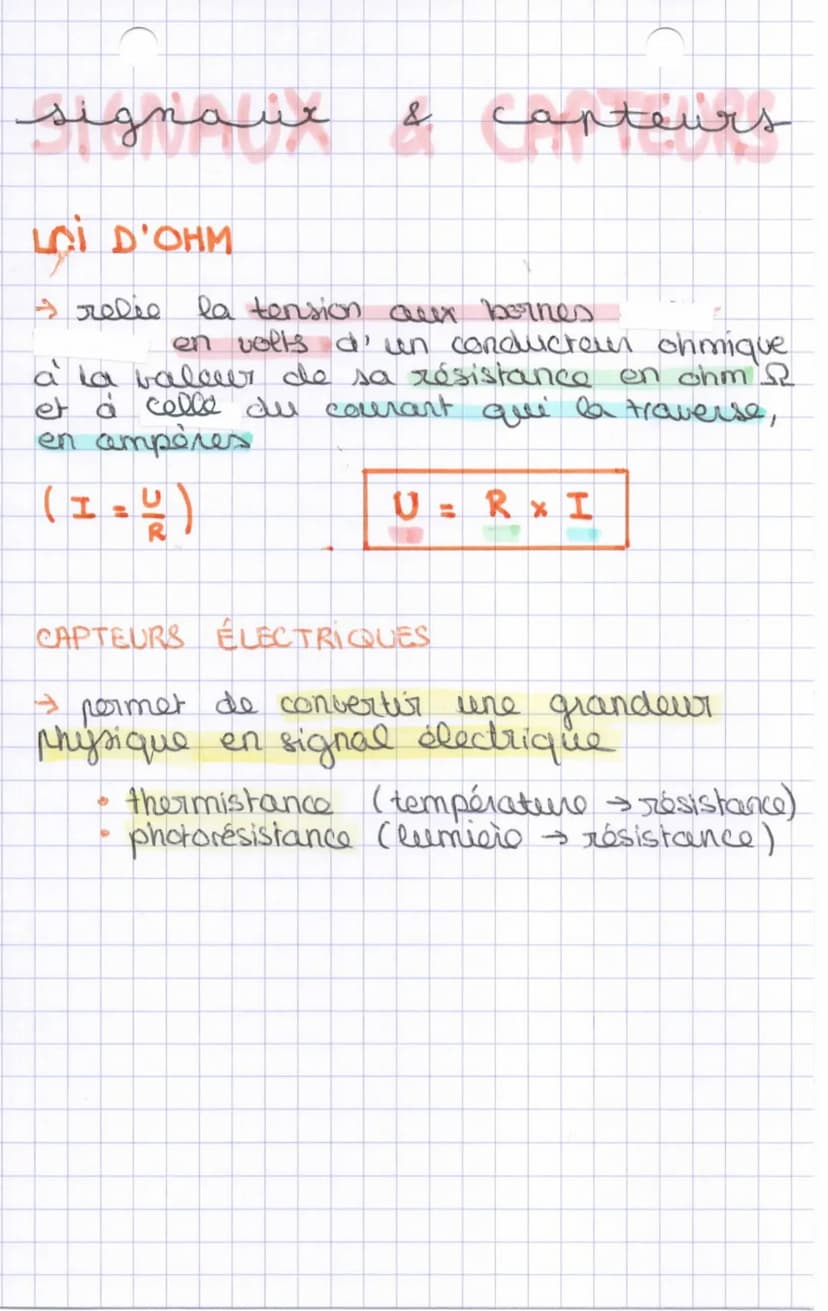 signaux & capteurs
LOI D'OHM
→ relie la tension aux bornes
en volts d'un conducteur ohmique
à la valeur de sa résistance en ohm Ω
et à celle du courant qui la traverse,
en ampères
(I = U/R)
U = R × I
CAPTEURS ÉLECTRIQUES
→ permet de convertir une grandeur
physique en signal électrique
• thermistance (température → résistance)
• photorésistance (lumière → résistance)